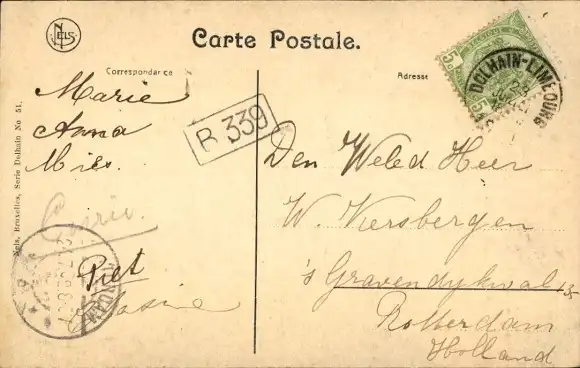 NELS
Carte Postale.
Correspondance
Adresse
Marie
Anna
Mies.
Corrie.
Piet
R 339
Nels, Bruxelles, Serie Dolhain No 51.
BELGIQUE
5 5
DOLHAIN-LIMBOURG
Den Weled Heer
W. Viersbergen
's Gravendykwal 135
Rotterdam
Holland